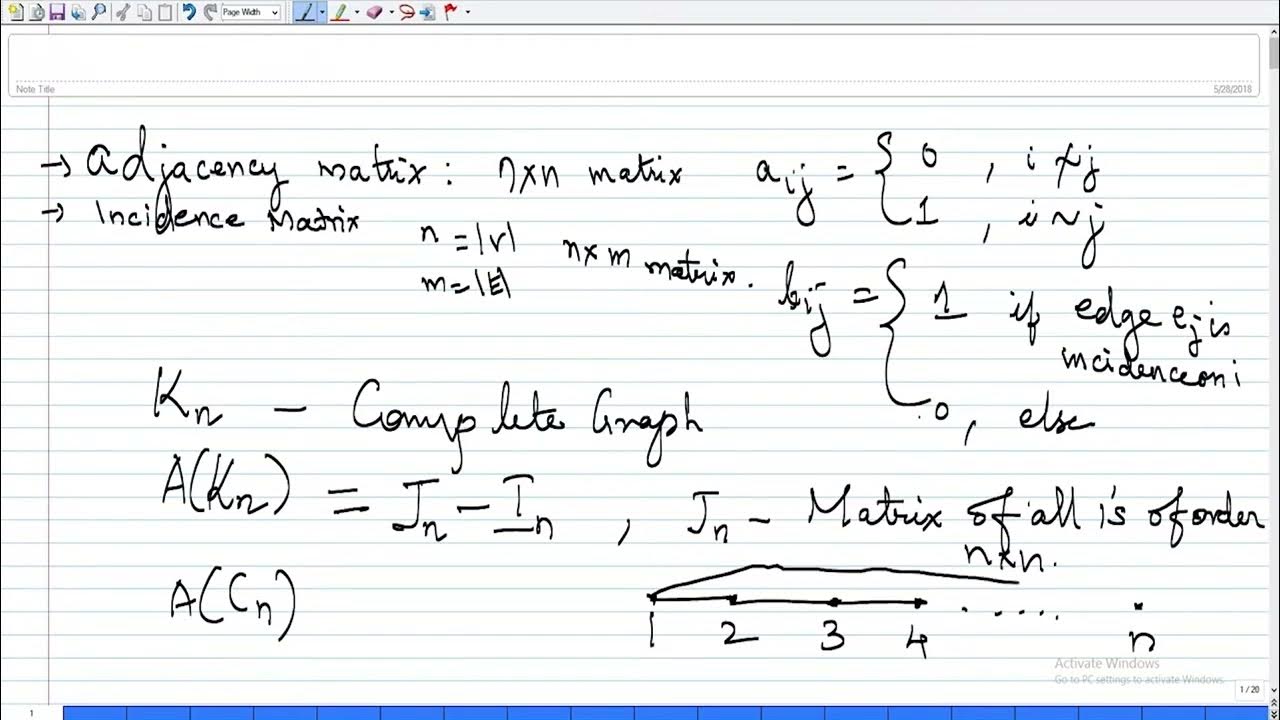 Page Width
Note Title
5/28/2018
→ Adjacency matrix : n×n matrix a_ij = { 0 , i ≁ j
1 , i ~ j
→ Incidence Matrix
n = |V|
m = |E|
n×m matrix. b_ij = { 1 if edge e_j is
incidence on i
0 , else
K_n – Complete Graph
A(K_n) = J_n – I_n , J_n – Matrix of all 1's of order
n×n.
A(C_n)
1 2 3 4 . . . . . n
Activate Windows
Go to PC settings to activate Windows.
1 / 20
1